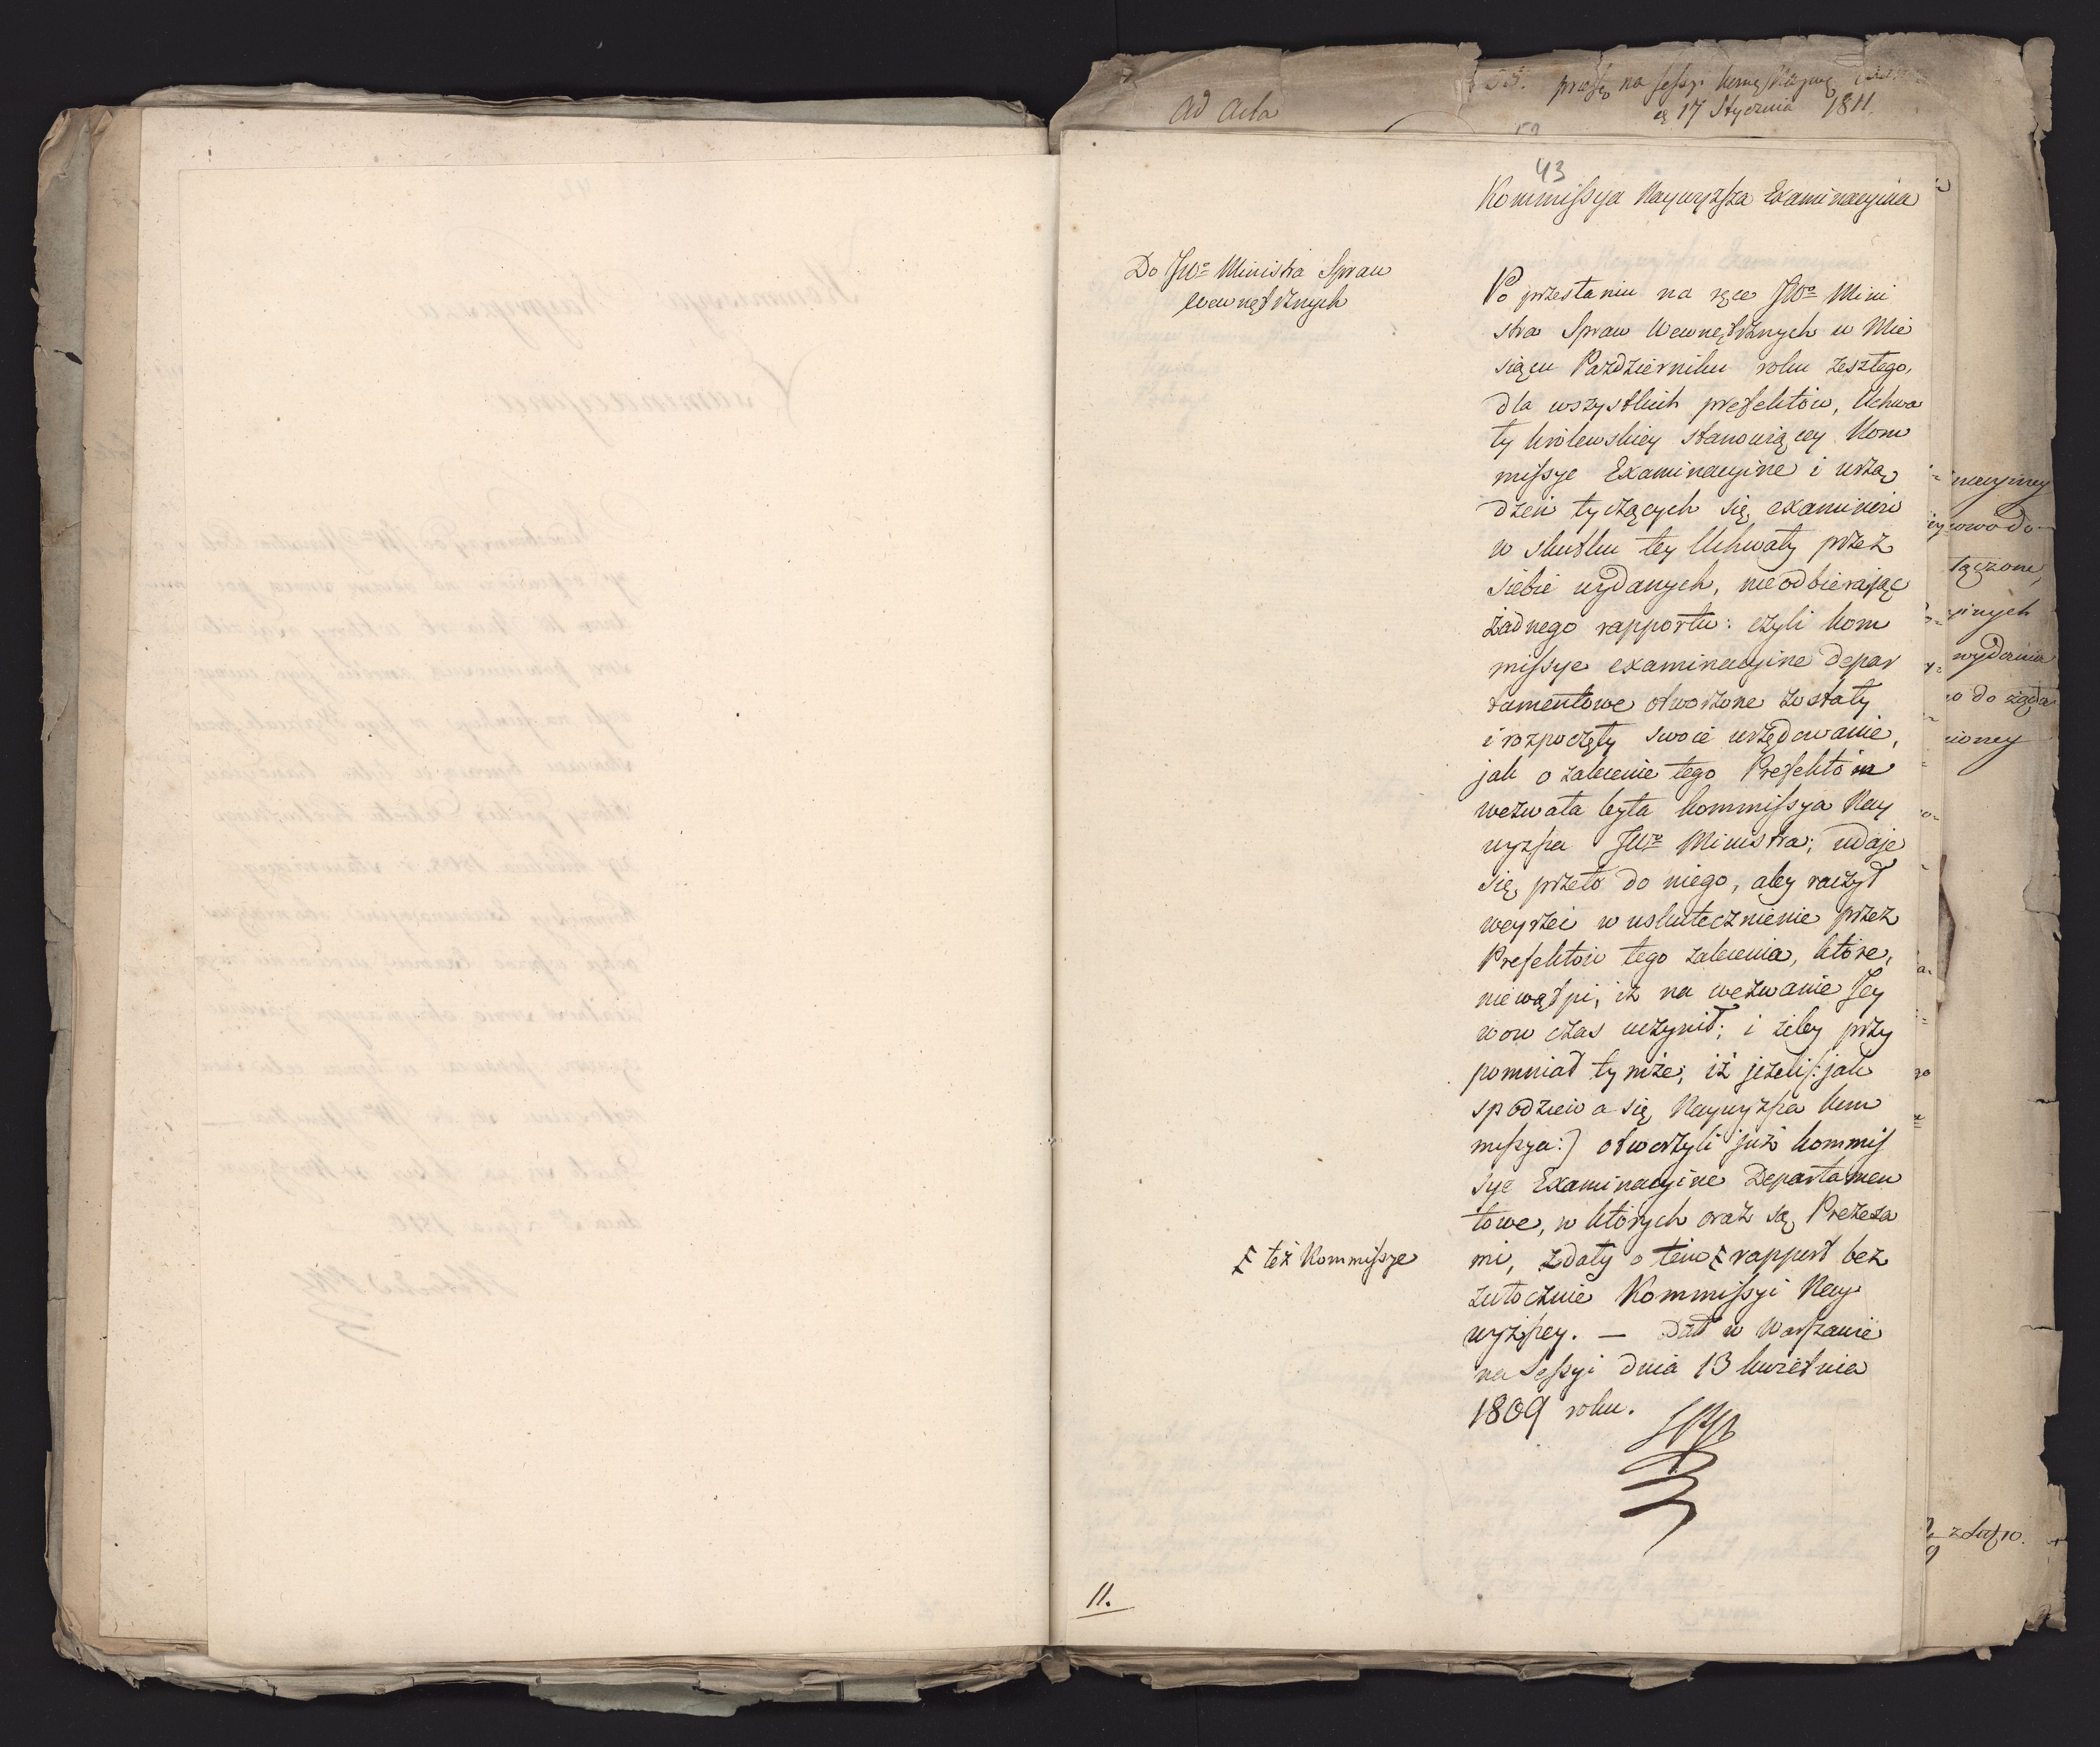 Ad Acta
na sessyi
17 Stycznia 1811
43
Kommissya Naywyższa Examinacyina
Do JWo Ministra Spraw
Wewnętrznych
Po przesłaniu na ręce JWo Mini
stra Spraw Wewnętrznych w Mie
siącu Październiku roku zeszłego,
dla wszystkich prefektów, Uchwa
ły królewskiey stanowiącey Kom
missye Examinacyine i urzą
dzeń tyczących się examinów
w skutku tey Uchwały przez
siebie wydanych, nieodbierając
żadnego rapportu: czyli kom
missye examinacyine depar
tamentowe otworzone zostały
i rozpoczęły swoie urzędowanie,
jak o zalecenie tego Prefektom
wezwała była Kommissya Nay
wyższa JWo Ministra; udaje
się, przeto do niego, aby raczył
weyrzeć w uskutecznienie przez
Prefektów tego zalecenia, które,
niewątpi, iż na wezwanie Jey
wow czas uczynił; i żeby przy
pomniał tymże, iż jeżeli /: jak
spodziewa się Naywyższa Kom
missya :) otworzyli już kommis
sye Examinacyine Departamen
towe, w których oraz są Prezesa
mi, zdały o tém ξ rapport bez
ξ też Kommissye
zwłocznie Kommissyi Nay
wyższey. — Dat w Warszawie
na Sessyi dnia 13 kwietnia
1809 roku.
11.
nacyiney
łączone,
yinych
wydania
ioney